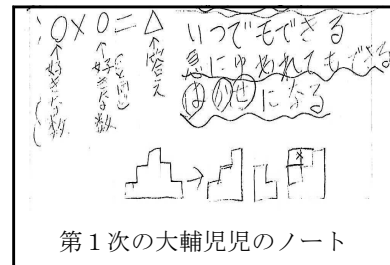 ○×○=△
↑好きな数
↑好きな数
いつでもできる
急にゆわれてもできる
はのせになる
第1次の大輔児児のノート